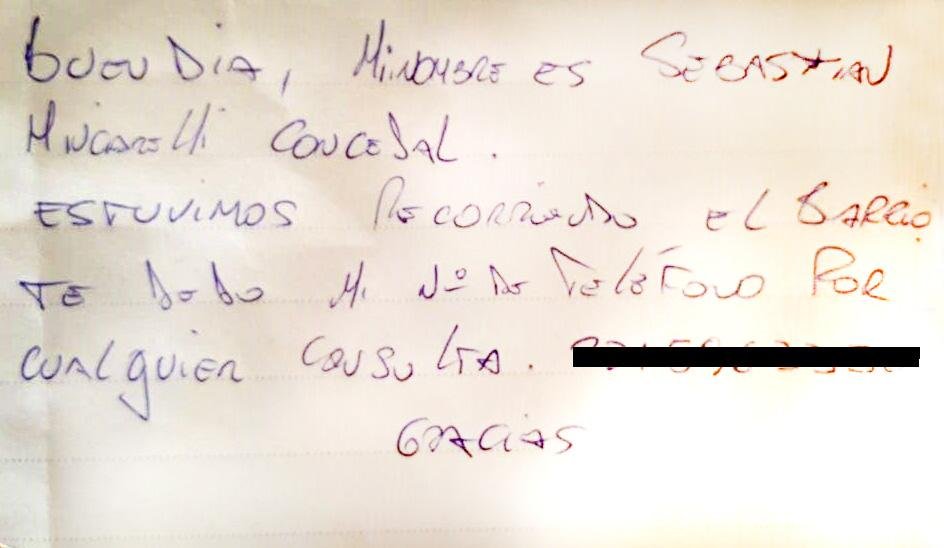 Buen Dia, Mi nombre es Sebastian
Mincarelli Concejal.
Estuvimos Recorriendo el Barrio
te dejo mi Nº de Teléfono por
cualquier consulta.
Gracias